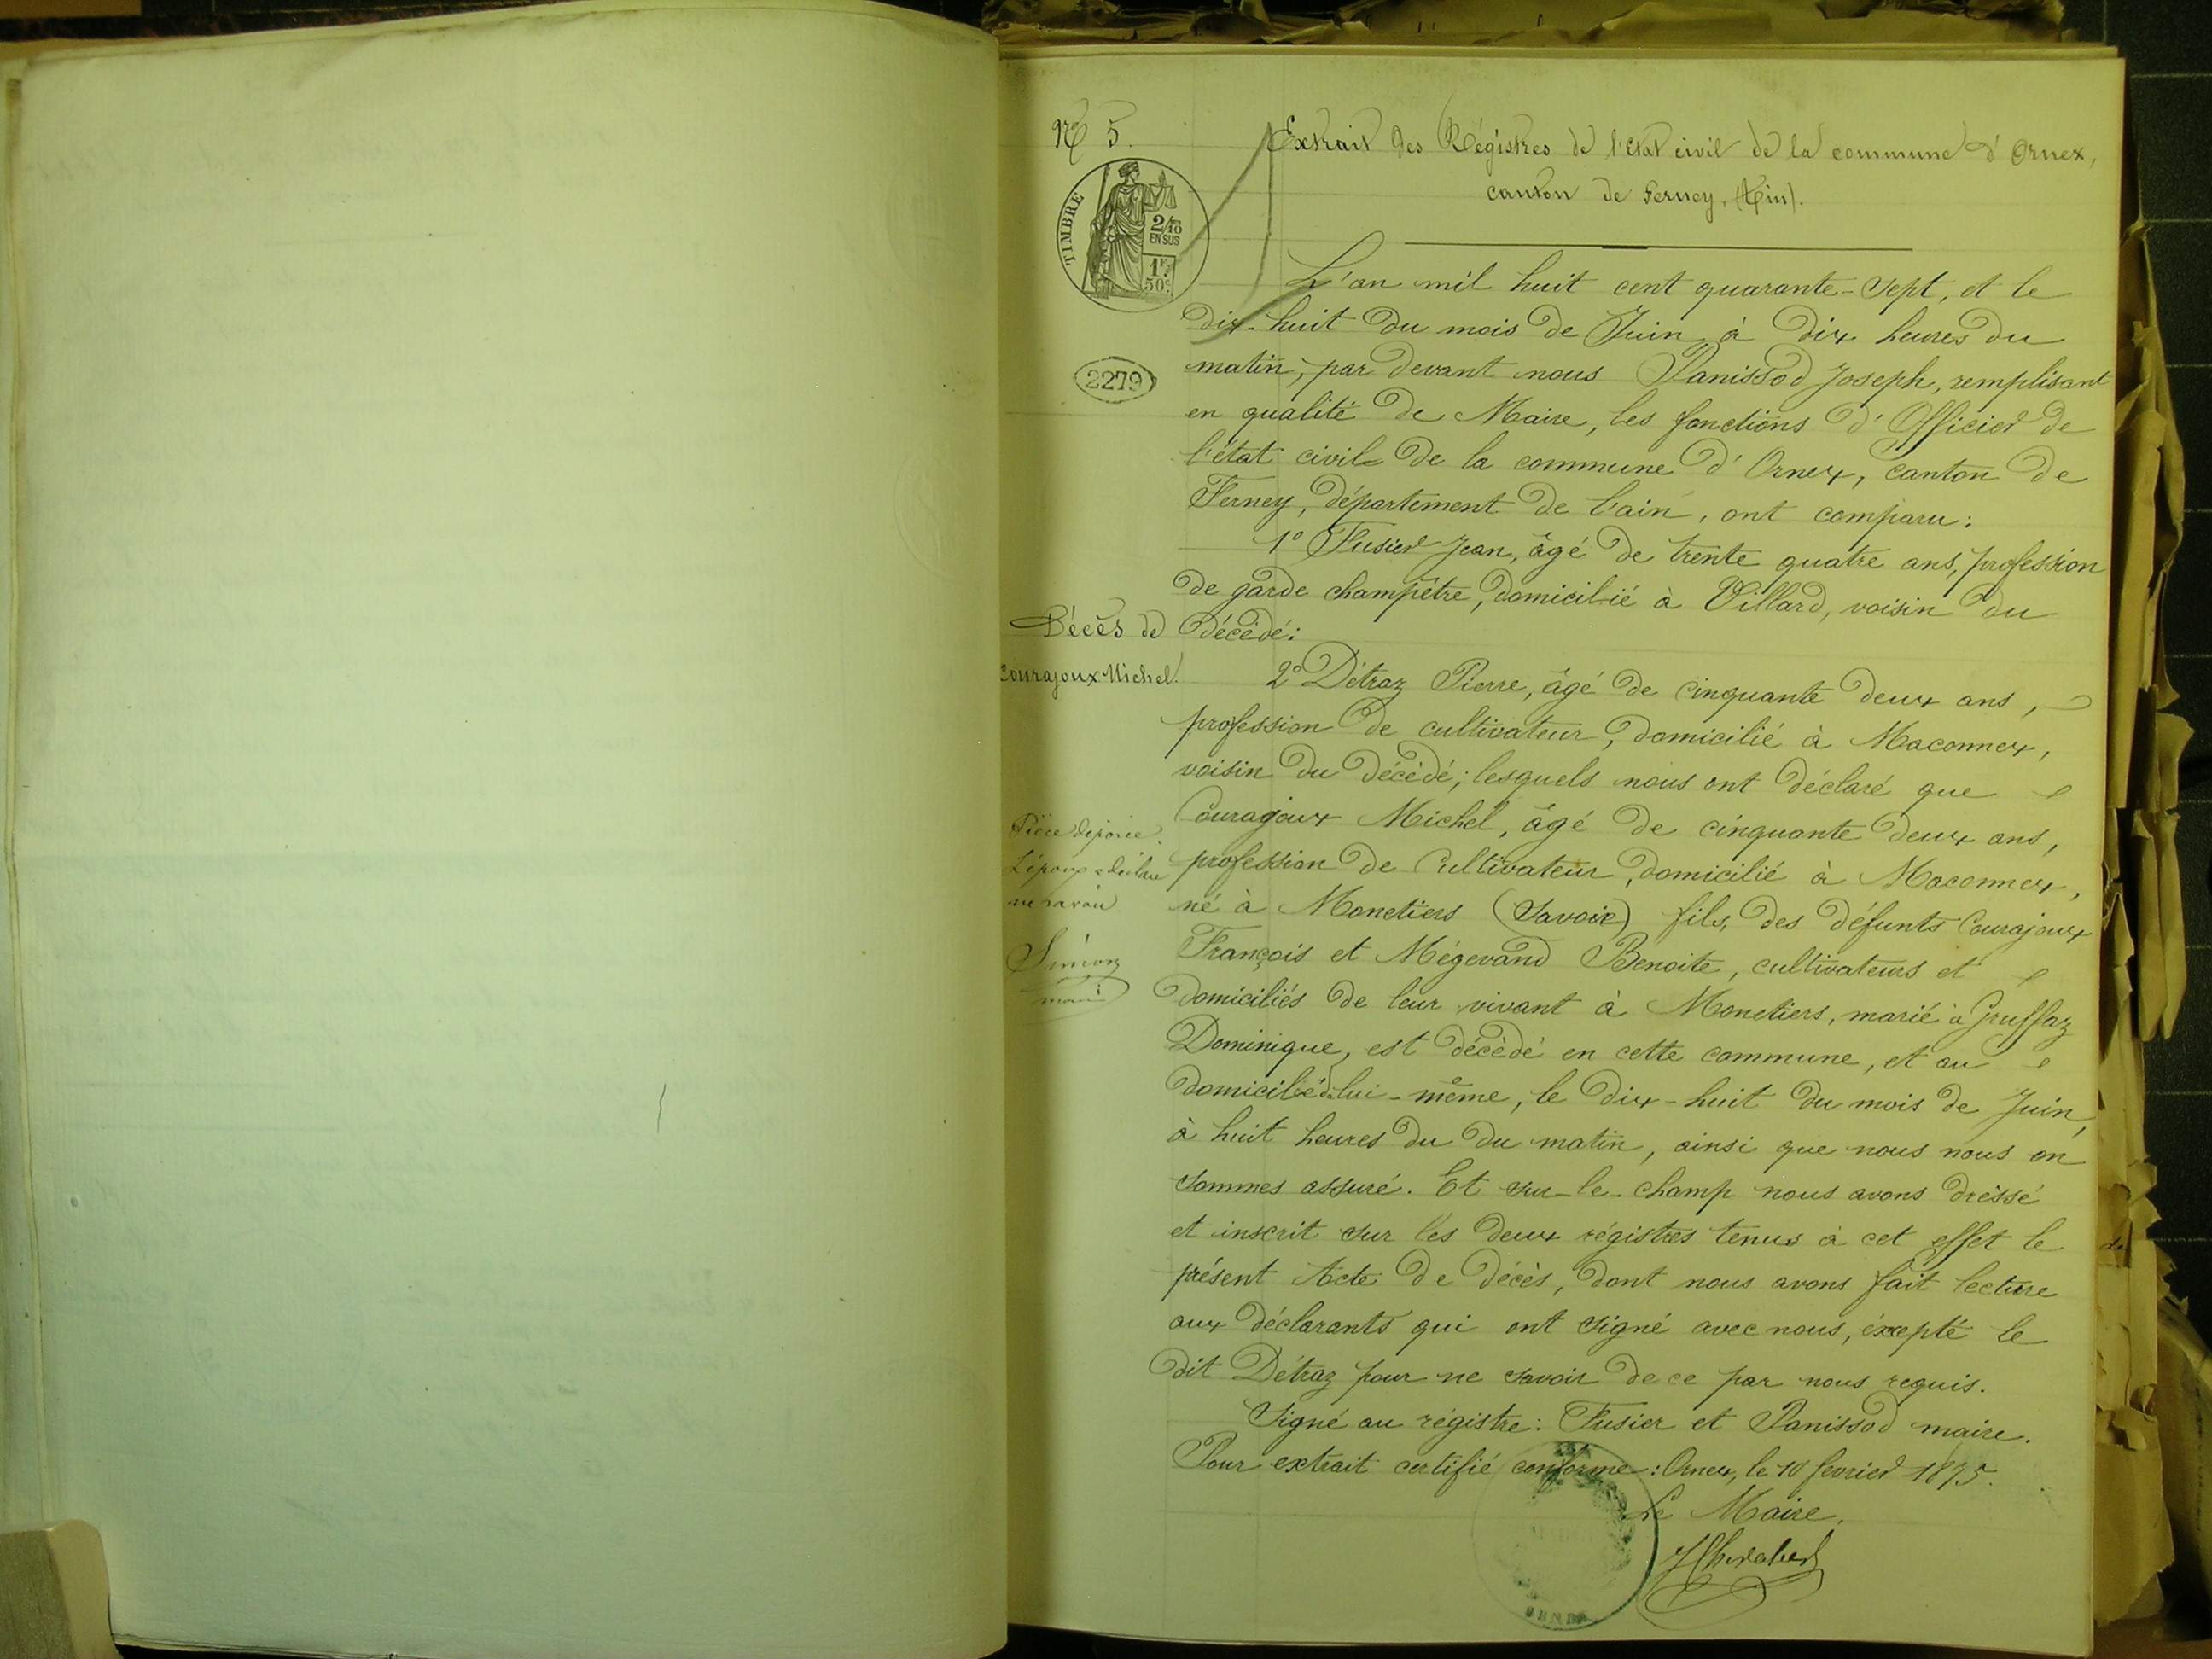 No 5.
Extrait des Régistres de l'Etat civil de la commune d'Ornex,
canton de Ferney, (Ain).
TIMBRE
2/10
EN SUS
1F.
50c.
2279
L'an mil huit cent quarante-sept, et le
dix-huit du mois de Juin à dix heures du
matin, par devant nous Panissod Joseph, remplisant
en qualité de Maire, les fonctions d'Officier de
l'état civil de la commune d'Ornex, canton de
Ferney, département de l'ain, ont comparu:
1° Fusier Jean, âgé de trente quatre ans, profession
de garde champêtre, domicilié à Villard, voisin du
décédé:
Décès de
Courajoux Michel.
2° Détraz Pierre, âgé de cinquante deux ans,
profession de cultivateur, domicilié à Maconnex,
voisin du décédé; lesquels nous ont déclaré que
Courajoux Michel, âgé de cinquante deux ans,
profession de Cultivateur, domicilié à Maconnex,
né à Monetiers (Savoie) fils, des défunts Courajoux
François et Mégevand Benoite, cultivateurs et
domiciliés de leur vivant à Monetiers, marié à Gruffaz
Dominique, est décédé en cette commune, et au
domicilié de lui-même, le dix-huit du mois de Juin,
à huit heures du du matin, ainsi que nous nous en
sommes assuré. Et sur-le-champ nous avons dréssé
et inscrit sur les deux régistres tenus à cet effet le
présent Acte de décès, dont nous avons fait lecture
aux déclarants qui ont signé avec nous, éxcepté le
dit Détraz pour ne savoir de ce par nous requis.
Signé au régistre: Fusier et Panissod maire.
Pour extrait certifié conforme: Ornex, le 10 fevrier 1895.
Le Maire,
Pièce
L'époux a déclaré